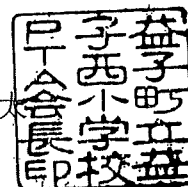 益子町立益
子西小学校
PTA会長印